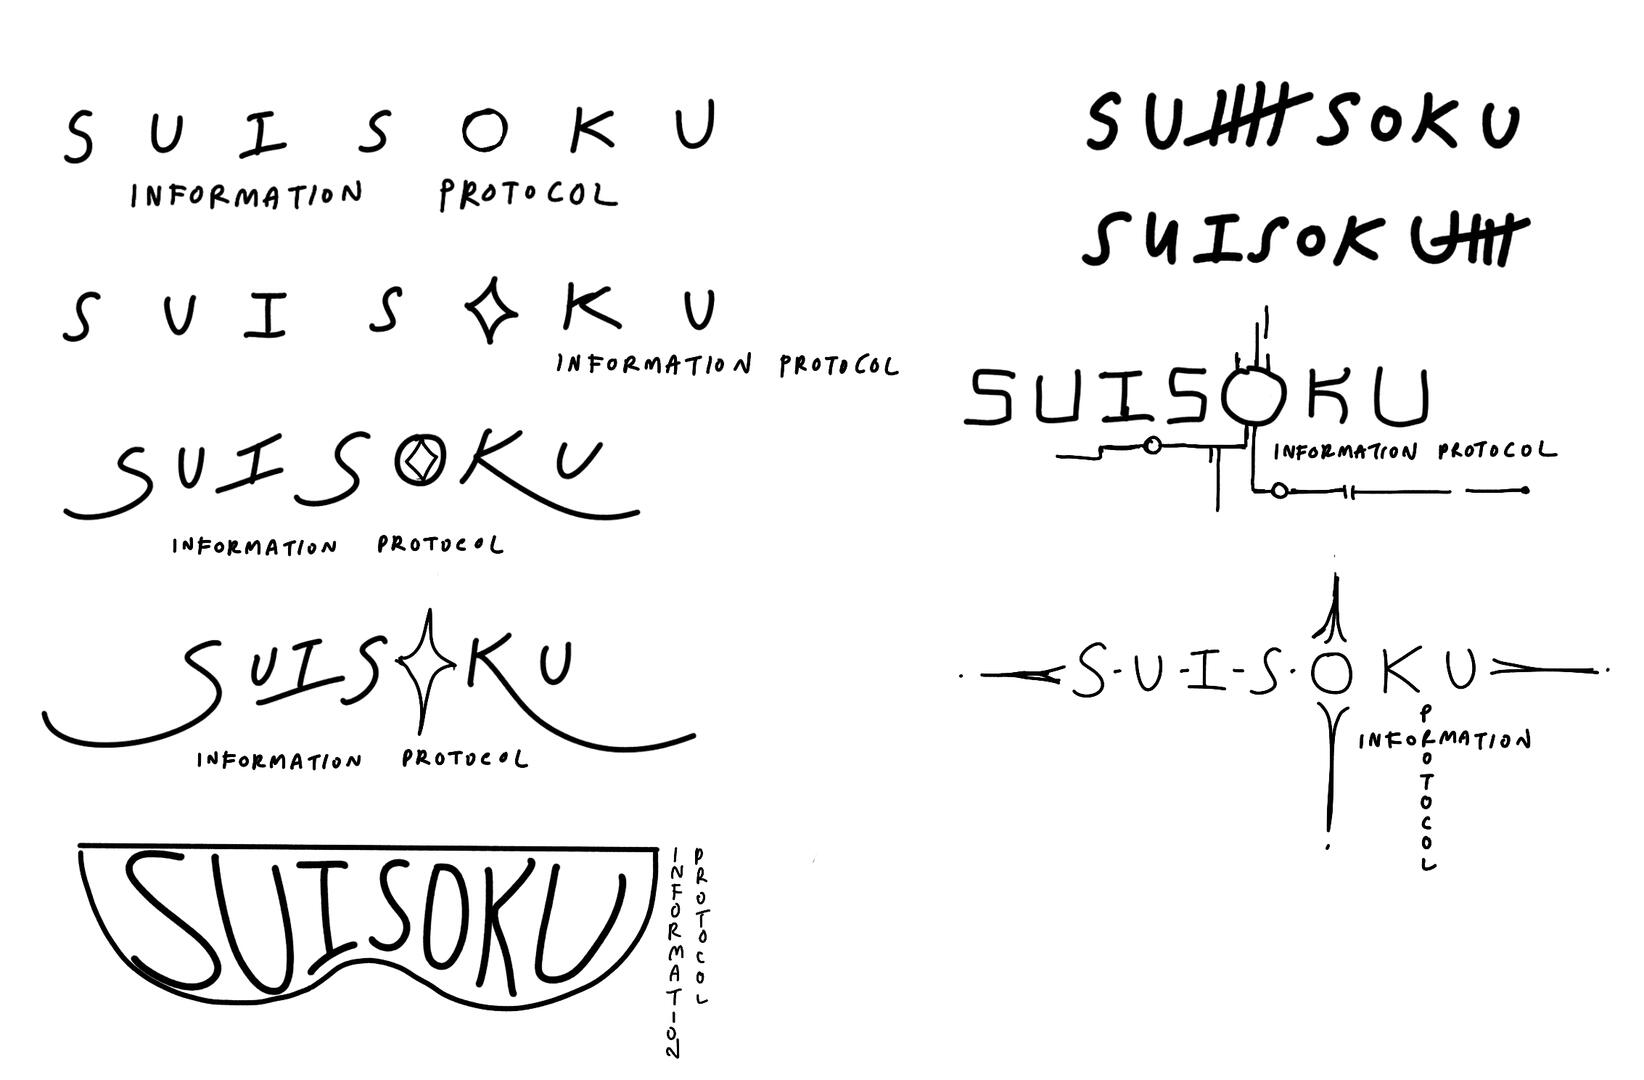 SUISOKU
INFORMATION PROTOCOL
SUISKU
INFORMATION PROTOCOL
SUISOKU
INFORMATION PROTOCOL
SUISKU
INFORMATION PROTOCOL
SUISOKU
INFORMATION
PROTOCOL
SUSOKU
SUISOKU
SUISOKU
INFORMATION PROTOCOL
S-U-I-S·OKU
INFORMATION
PROTOCOL